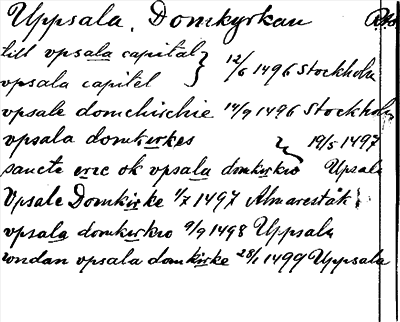 Uppsala, Domkyrkan
till vpsala capital } 12/6 1496 Stockholm
vpsala capitel
vpsale domchirchie 14/9 1496 Stockholm
vpsala domkirkes } 19/5 1497
sancte eric ok vpsala domkirkio Uppsala
Vpsale Domkirke 1/7 1497 Almarestäk
vpsala domkirkio 9/9 1498 Uppsala
wndan vpsala domkirke 28/1 1499 Uppsala